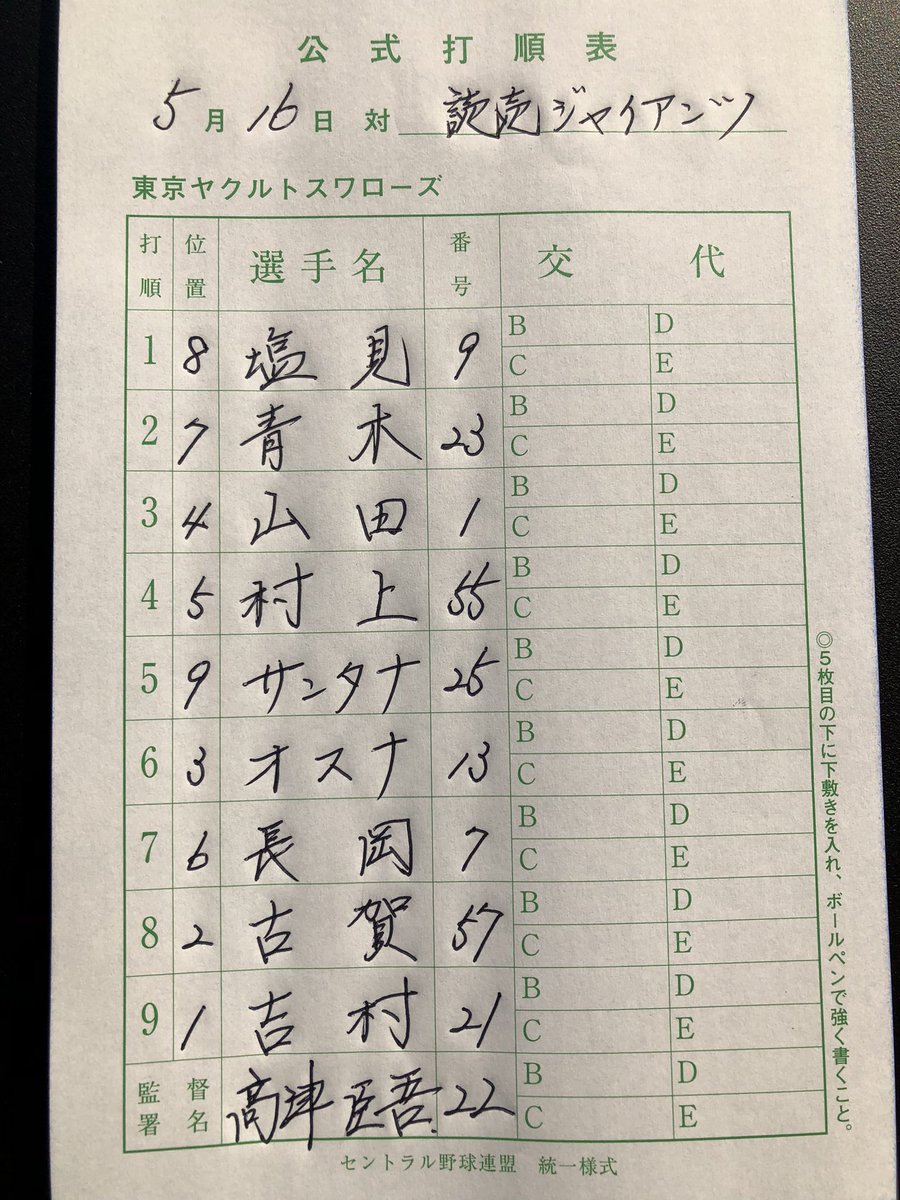 公式打順表
5月16日 対 読売ジャイアンツ
東京ヤクルトスワローズ
打順 位置 選手名 番号 交代
1 8 塩見 9 B D C E
2 7 青木 23 B D C E
3 4 山田 1 B D C E
4 5 村上 55 B D C E
5 9 サンタナ 25 B D C E
6 3 オスナ 13 B D C E
7 6 長岡 7 B D C E
8 2 古賀 57 B D C E
9 1 吉村 21 B D C E
監督署名 高津臣吾 22 B D C E
セントラル野球連盟 統一様式
◎5枚目の下に下敷きを入れ、ボールペンで強く書くこと。